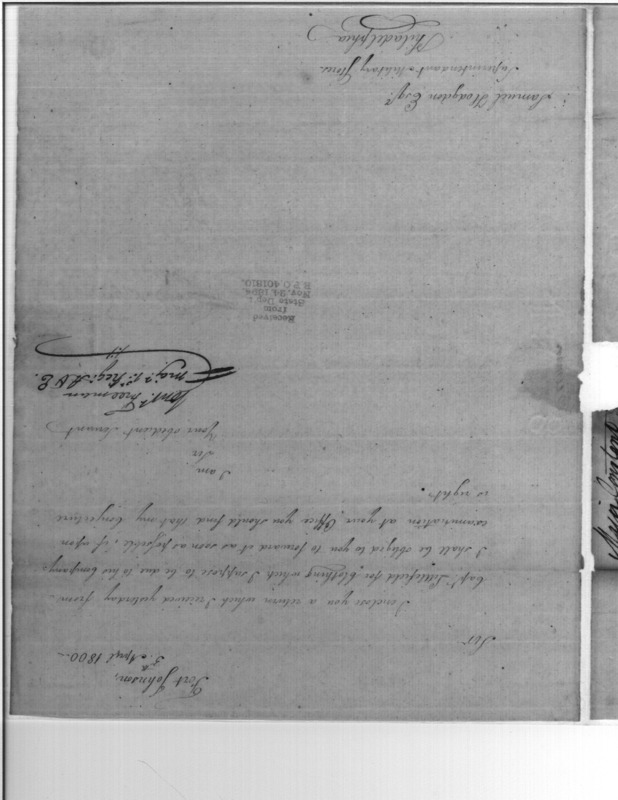 Fort Johnson,
3d April 1800.
Sir
I enclose you a return which I received yesterday from
Capt Littlefield for clothing which I suppose to be due to his Company.
I shall be obliged to you to forward it as soon as possible, if upon
examination at your Office you should find that my conjecture
is right.
I am
Sir
Your obedient Servant
Const. Freeman
Maj. 1st Regt A & E.
Received
from
State Dep't
Nov. 24. 1894.
R.P.O 401810.
Samuel Hodgdon Esqr
Superintendant Military Stores.
Philadelphia
Major Constant